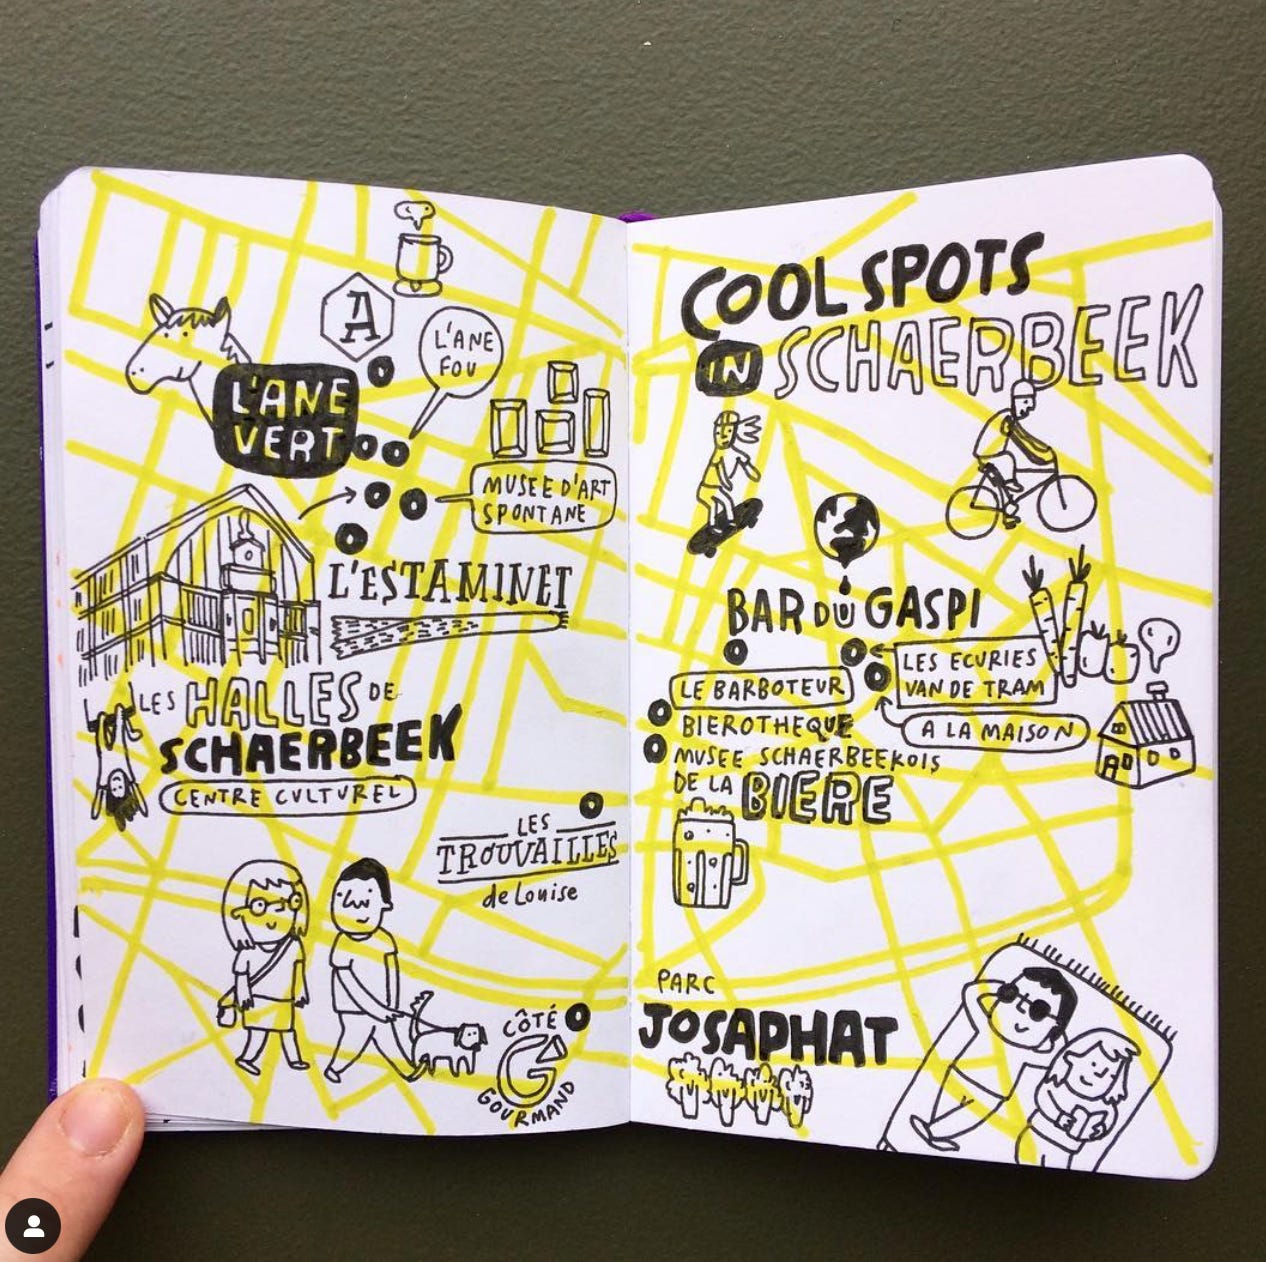 A
L'ANE
FOU
L'ANE
VERT
MUSEE D'ART
SPONTANE
L'ESTAMINET
LES HALLES DE
SCHAERBEEK
CENTRE CULTUREL
LES
TROUVAILLES
de Louise
CÔTÉ
G
GOURMAND
COOL SPOTS
IN SCHAERBEEK
BAR DU GASPI
LES ECURIES
VAN DE TRAM
LE BARBOTEUR
BIEROTHEQUE
A LA MAISON
MUSEE SCHAERBEEKOIS
DE LA BIERE
PARC
JOSAPHAT